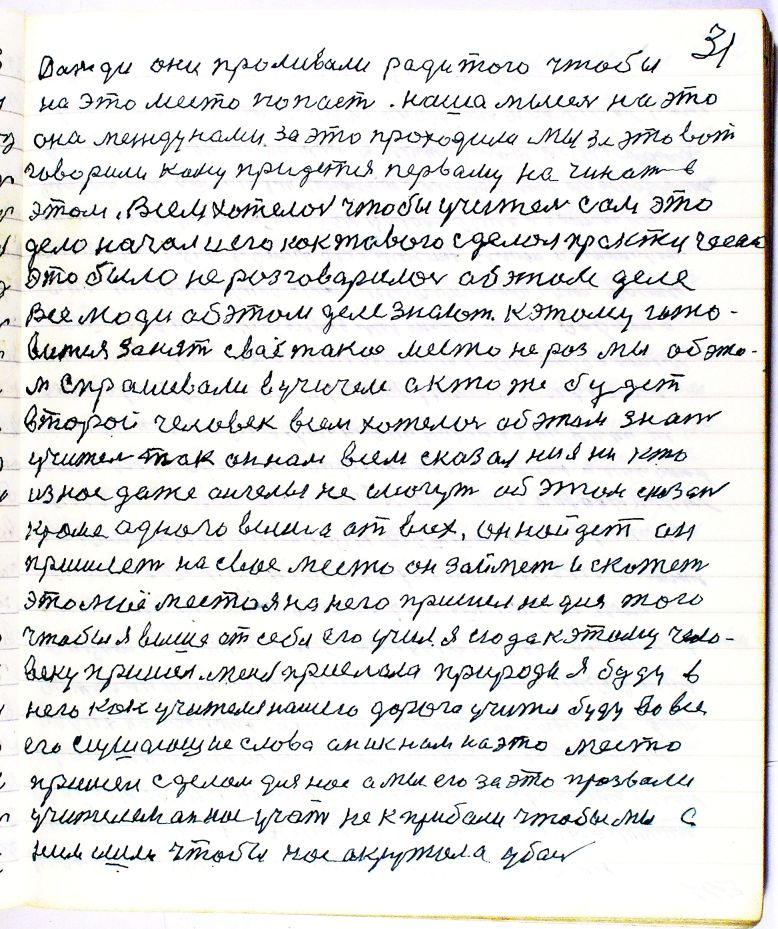 31
Дажди они проливали радитого чтобы
на это место попаст. наша мысля на это
она междунами за это проходила мы за это вот
говорили кому придется первому на чинат в
этом. Всем хотелоя чтобы учител сам это
дело начал и его как такового сделал практи
это было не розговарилоя об этом деле
Все люди об этом деле знают. К этому гото-
вится занят своё такое место не роз мы об это-
м спрашивали в учител а кто же будет
второй человек всем хотелоя об этом знат
учител так он нам всем сказал ни я ни кто
из нас даже ангелы не смогут об этом сказат
кроме адного выша от всех, он найдет он
пришлет на свое место он займет и скажет
это моё место я на него пришел не для того
чтобы я выше от себя его учил. я сюда к этому чело-
веку пришел меня прислала природа я буду в
него как учителя нашего дорога учится буду во все
его слушающие слова аник нам на это место
пришел с делом для нас а мы его за это прозвали
учителем он нас учат не к прибали чтобы мы с
ним шли чтобы нас окружала